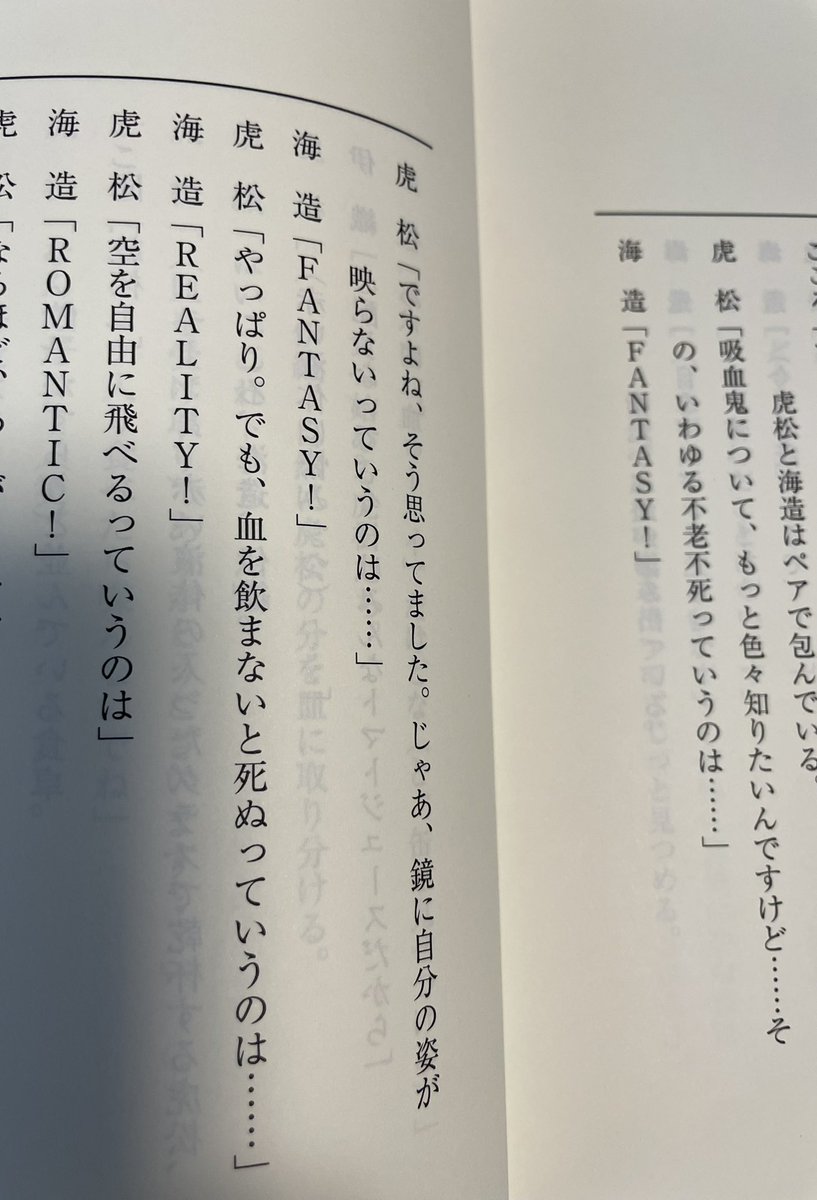 虎松と海造はペアで包んでいる。
虎　松「吸血鬼について、もっと色々知りたいんですけど……そ
の、いわゆる不老不死っていうのは……」
海　造「ＦＡＮＴＡＳＹ！」
虎　松「ですよね、そう思ってました。じゃあ、鏡に自分の姿が
映らないっていうのは……」
海　造「ＦＡＮＴＡＳＹ！」
虎　松「やっぱり。でも、血を飲まないと死ぬっていうのは……」
海　造「ＲＥＡＬＩＴＹ！」
虎　松「空を自由に飛べるっていうのは」
海　造「ＲＯＭＡＮＴＩＣ！」
虎　松「なるほど、